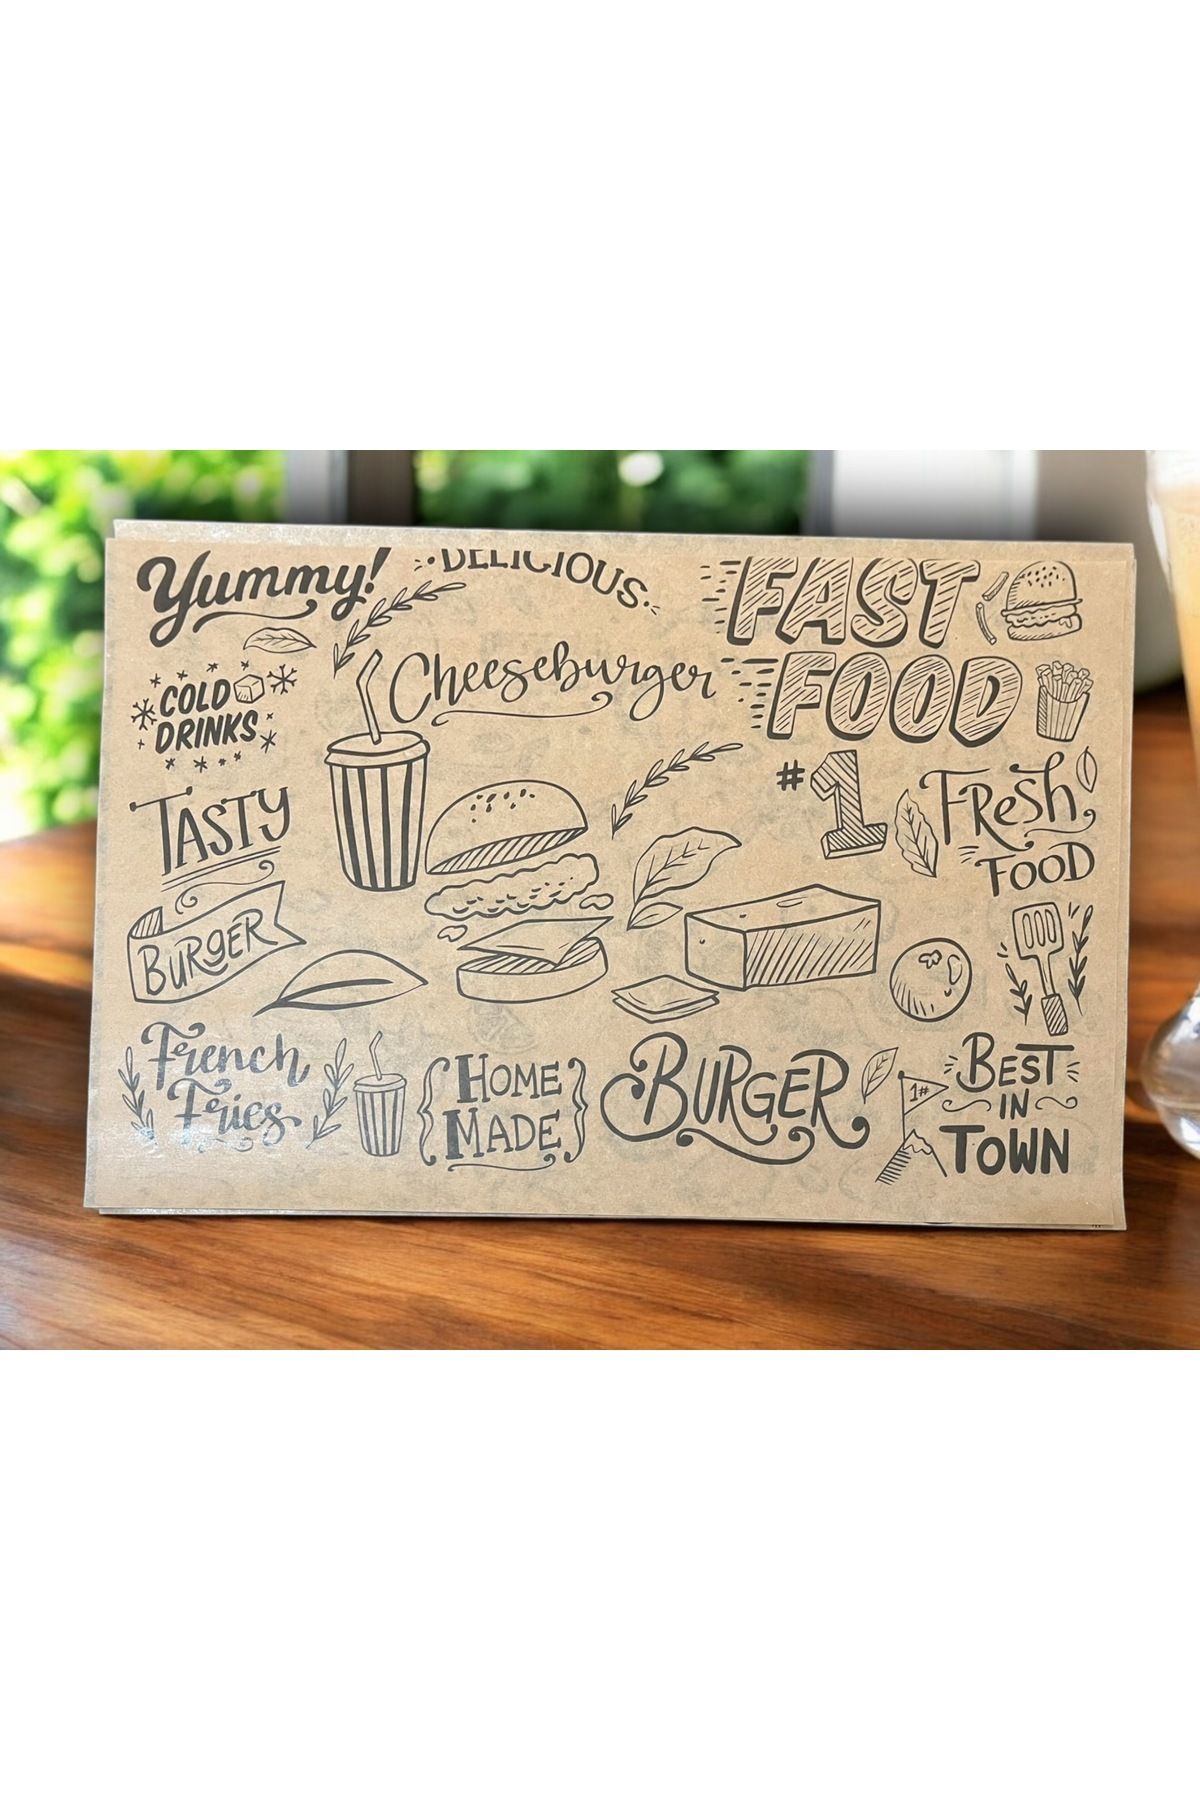 Yummy!
DELICIOUS
FAST
FOOD
Cheeseburger
COLD
DRINKS
TASTY
BURGER
#1
FResh
FOOD
French
Fries
HOME
MADE
BURGER
1#
BEST
IN
TOWN